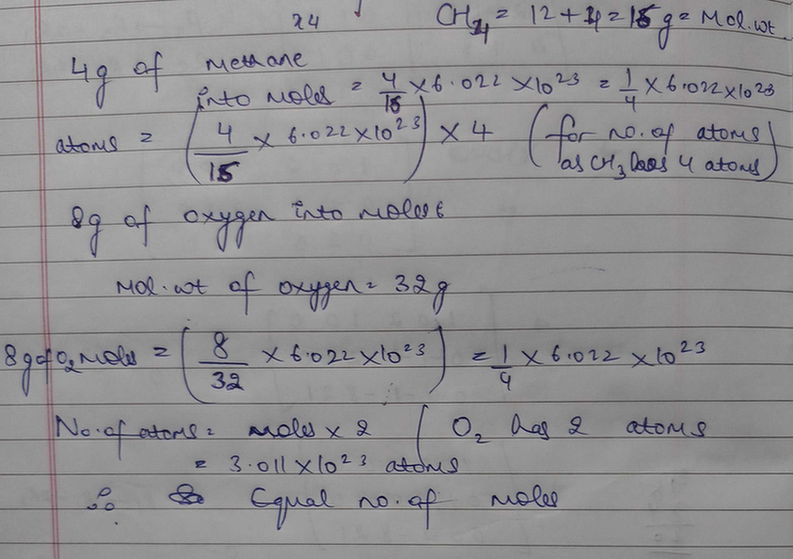 x4
CH4 = 12 + 4 = 16 g = Mol. wt
4g of methane
into moles = 4/16 × 6.022 × 10^23 = 1/4 × 6.022 × 10^23
atoms = (4/16 × 6.022 × 10^23) × 4 (for no. of atoms
as CH3 has 4 atoms)
8g of oxygen into moles
Mol. wt of oxygen = 32 g
8g of O2 moles = (8/32 × 6.022 × 10^23) = 1/4 × 6.022 × 10^23
No. of atoms = moles × 2 ( O2 has 2 atoms
= 3.011 × 10^23 atoms
∴ Equal no. of moles